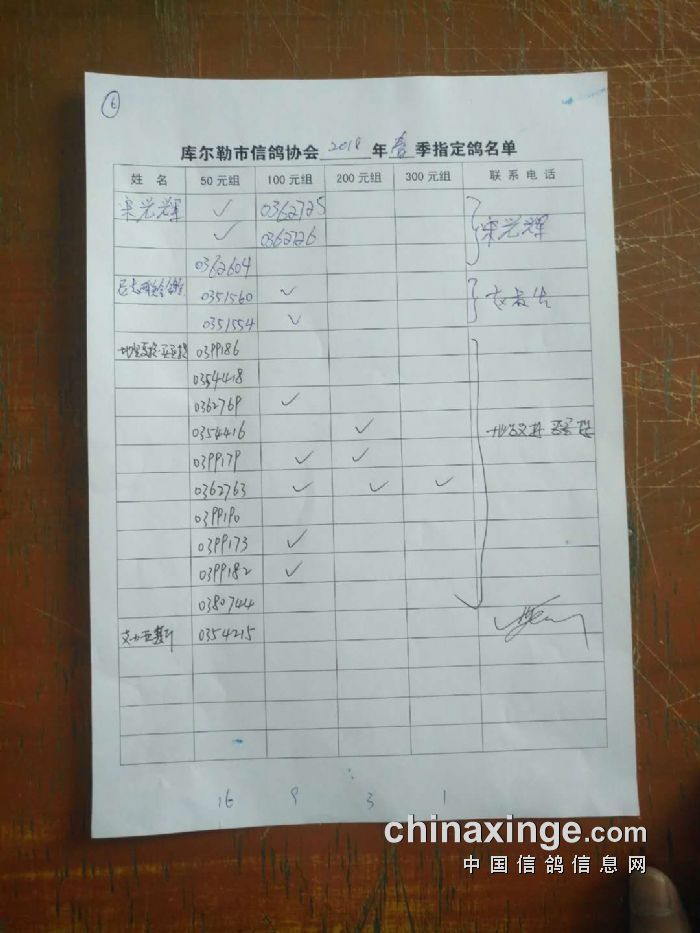 6
库尔勒市信鸽协会 2018 年 春 季指定鸽名单
姓 名 50元组 100元组 200元组 300元组 联系电话
宋光辉 ✓ 0362725
✓ 0362726 宋光辉
0362604
0351560 ✓
0351554 ✓
0399186
0354418
0362769 ✓
0354416 ✓
0399179 ✓ ✓
0362763 ✓ ✓ ✓
0399190
0399173 ✓
0399182 ✓
0380744
0354215
16 9 3 1
chinaxinge.com
中国信鸽信息网